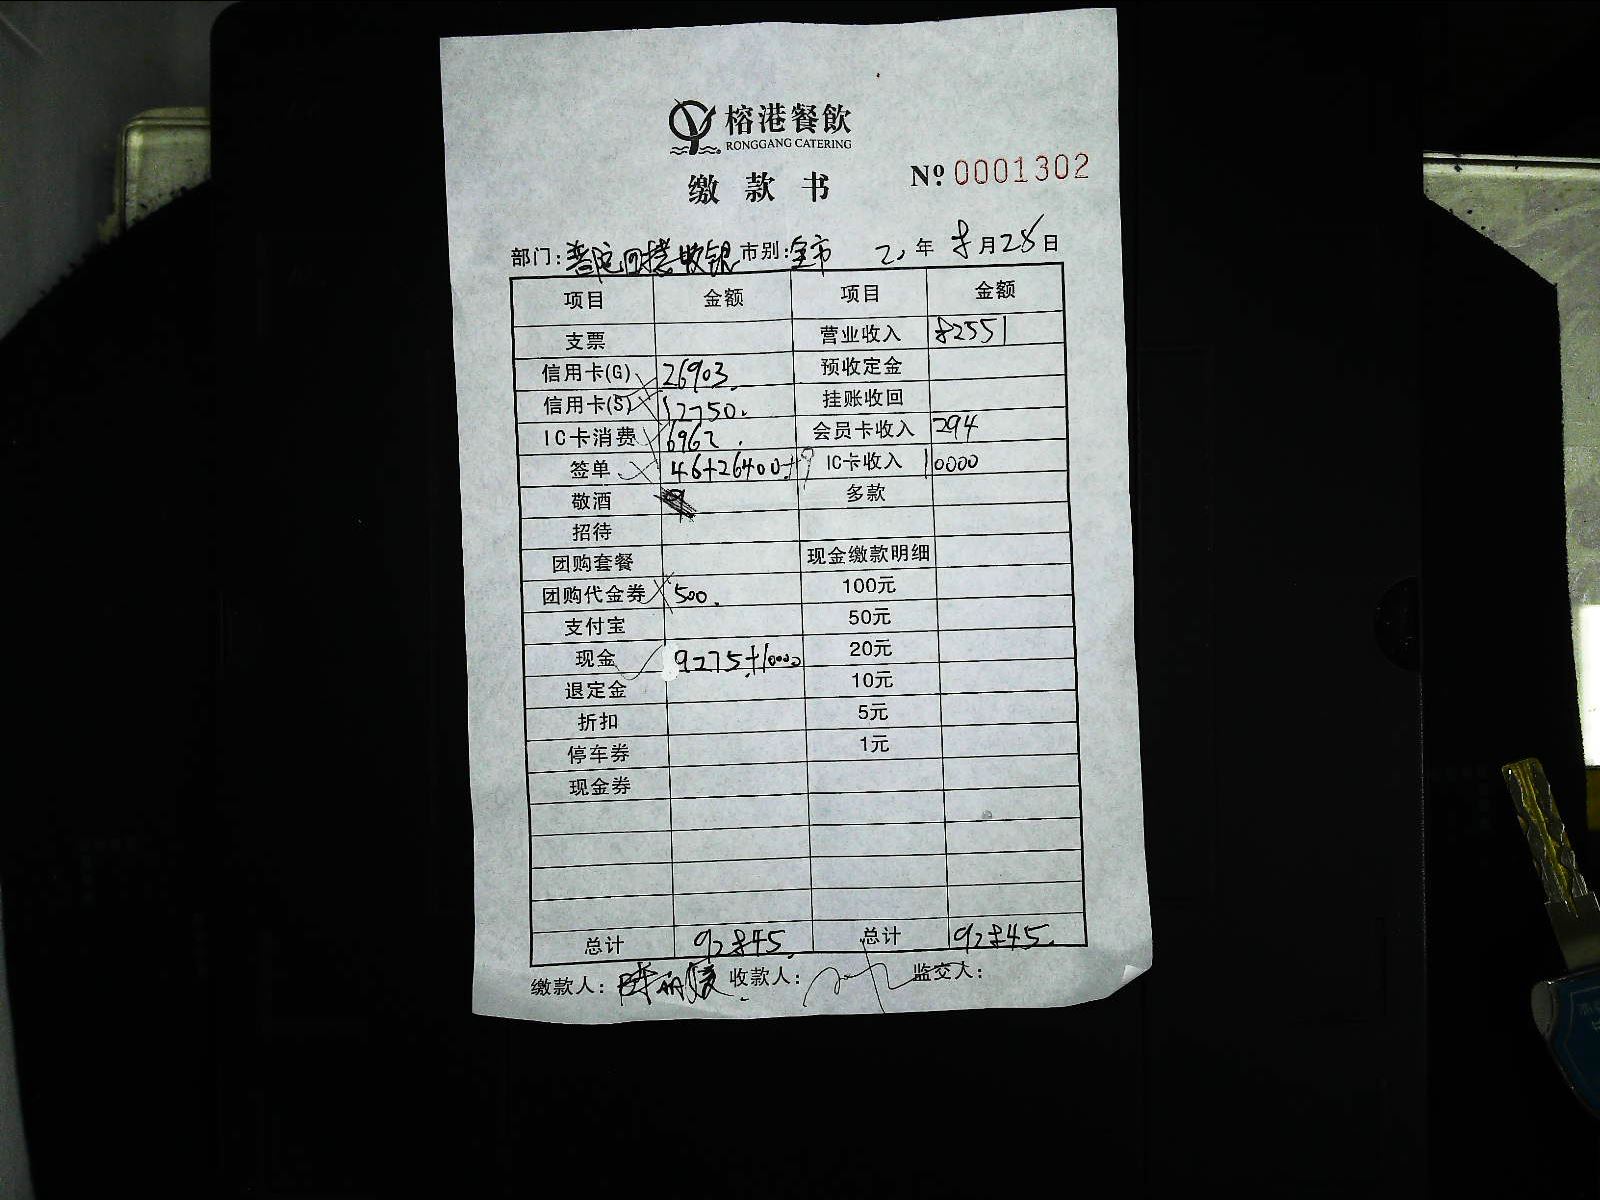 榕港餐飲
RONGGANG CATERING
缴款书 Nº 0001302
部门: 普陀 收银 市别: 全市 年 8月28日
项目 金额 项目 金额
支票 营业收入 82551
信用卡(G) 26903. 预收定金
信用卡(S) 12750. 挂账收回
IC卡消费 6962. 会员卡收入 294
签单 46+26400+9 IC卡收入 10000
敬酒 多款
招待
团购套餐 现金缴款明细
团购代金券 500. 100元
支付宝 50元
现金 9275+10000 20元
退定金 10元
折扣 5元
停车券 1元
现金券
总计 92845. 总计 92845.
缴款人: 收款人: 监交人: